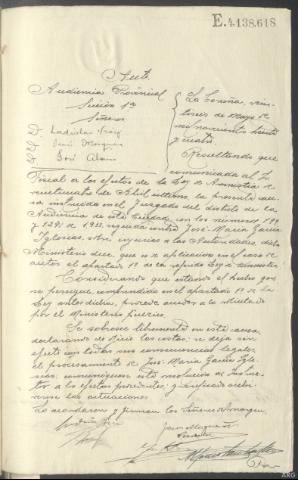 E.4.138.618
Auto
Audiencia Provincial
Sección 1ª
Señores
D. Ladislao Roig
D. José
D. José
La Coruña, vein-
de Mayo de
mil novecientos treinta
y cuatro.
Resultando que
comunicada al Fis-
cal a los efectos de la Ley de Amnistia de
veinticuatro de Abril último, la presente cau-
sa instruida en el Juzgado del distrito de la
Audiencia de esta Ciudad, con los números 199
y 1291 de 1931, seguida contra José-Maria Garcia
Iglesias, sobre injurias a las Autoridades, dicho
Ministerio dice que es de aplicacion en el caso de
autos el apartado 19 de la repetida Ley de Amnistia
Considerando que estando el hecho que
se persigue comprendido en el apartado 19 de la
Ley antes dicha, procede acceder a lo solicitado
por el Ministerio público.
Se sobresee libremente en esta causa,
declarando de oficio las costas; se deja sin
efecto con todas sus consecuencias legales
el procesamiento de José-Maria Garcia Igle-
sias; comuniquese esta resolucion al Instruc-
tor a los efectos procedentes; y verificado archi-
vense las actuaciones.
Lo acordaron y firman los Señores del margen
ARG